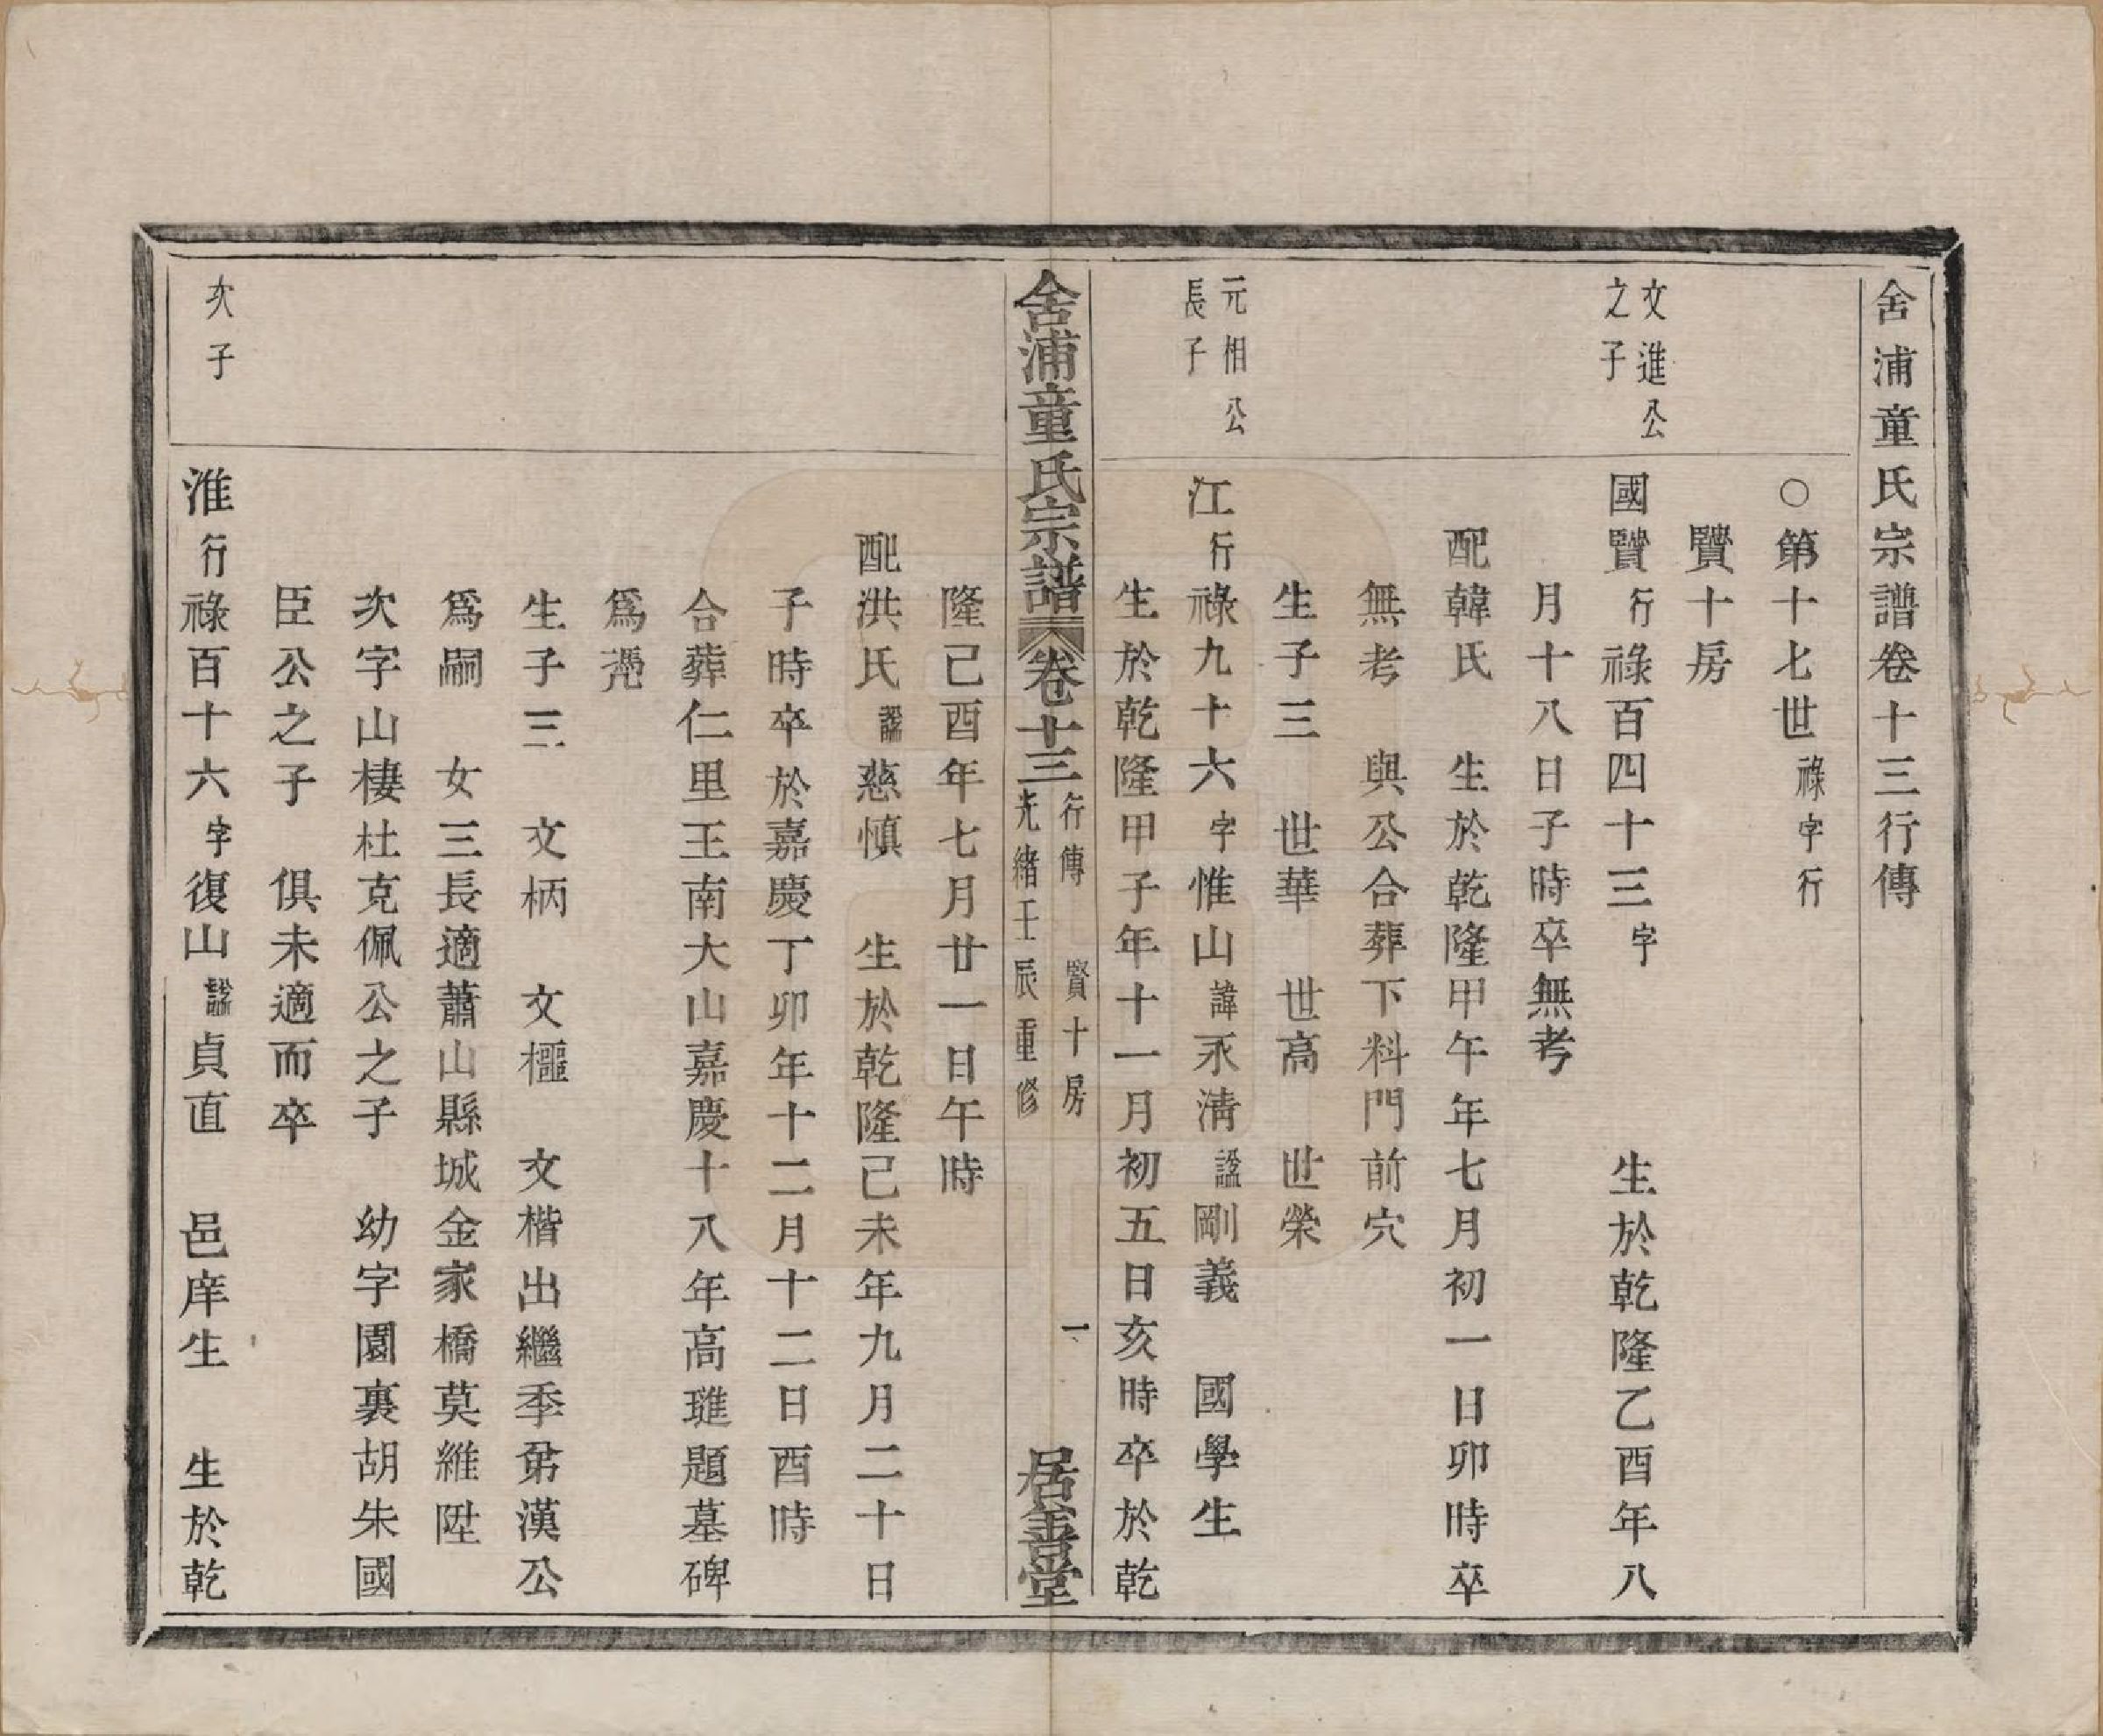 舍浦童氏宗譜卷十三行傳
○第十七世祿字行
賢十房
文進公之子
國賢行祿百四十三字　生於乾隆乙酉年八
月十八日子時卒無考
配韓氏　生於乾隆甲午年七月初一日卯時卒
無考　與公合葬下料門前穴
生子三　世華　世高　世榮
元相公長子
江行祿九十六字惟山諱永清諡剛義　國學生
生於乾隆甲子年十一月初五日亥時卒於乾
舍浦童氏宗譜卷十三
行傳　賢十房　一
光緒壬辰重修
居善堂
隆己酉年七月廿一日午時
配洪氏諡慈慎　生於乾隆己未年九月二十日
子時卒於嘉慶丁卯年十二月十二日酉時
合葬仁里王南大山嘉慶十八年高璡題墓碑
為凴
生子三　文柄　文櫃　文楷出繼季弟漢公
為嗣　女三長適蕭山縣城金家橋莫維陞
次字山棲杜克佩公之子　幼字園裏胡朱國
臣公之子　俱未適而卒
次子
淮行祿百十六字復山諡貞直　邑庠生　生於乾